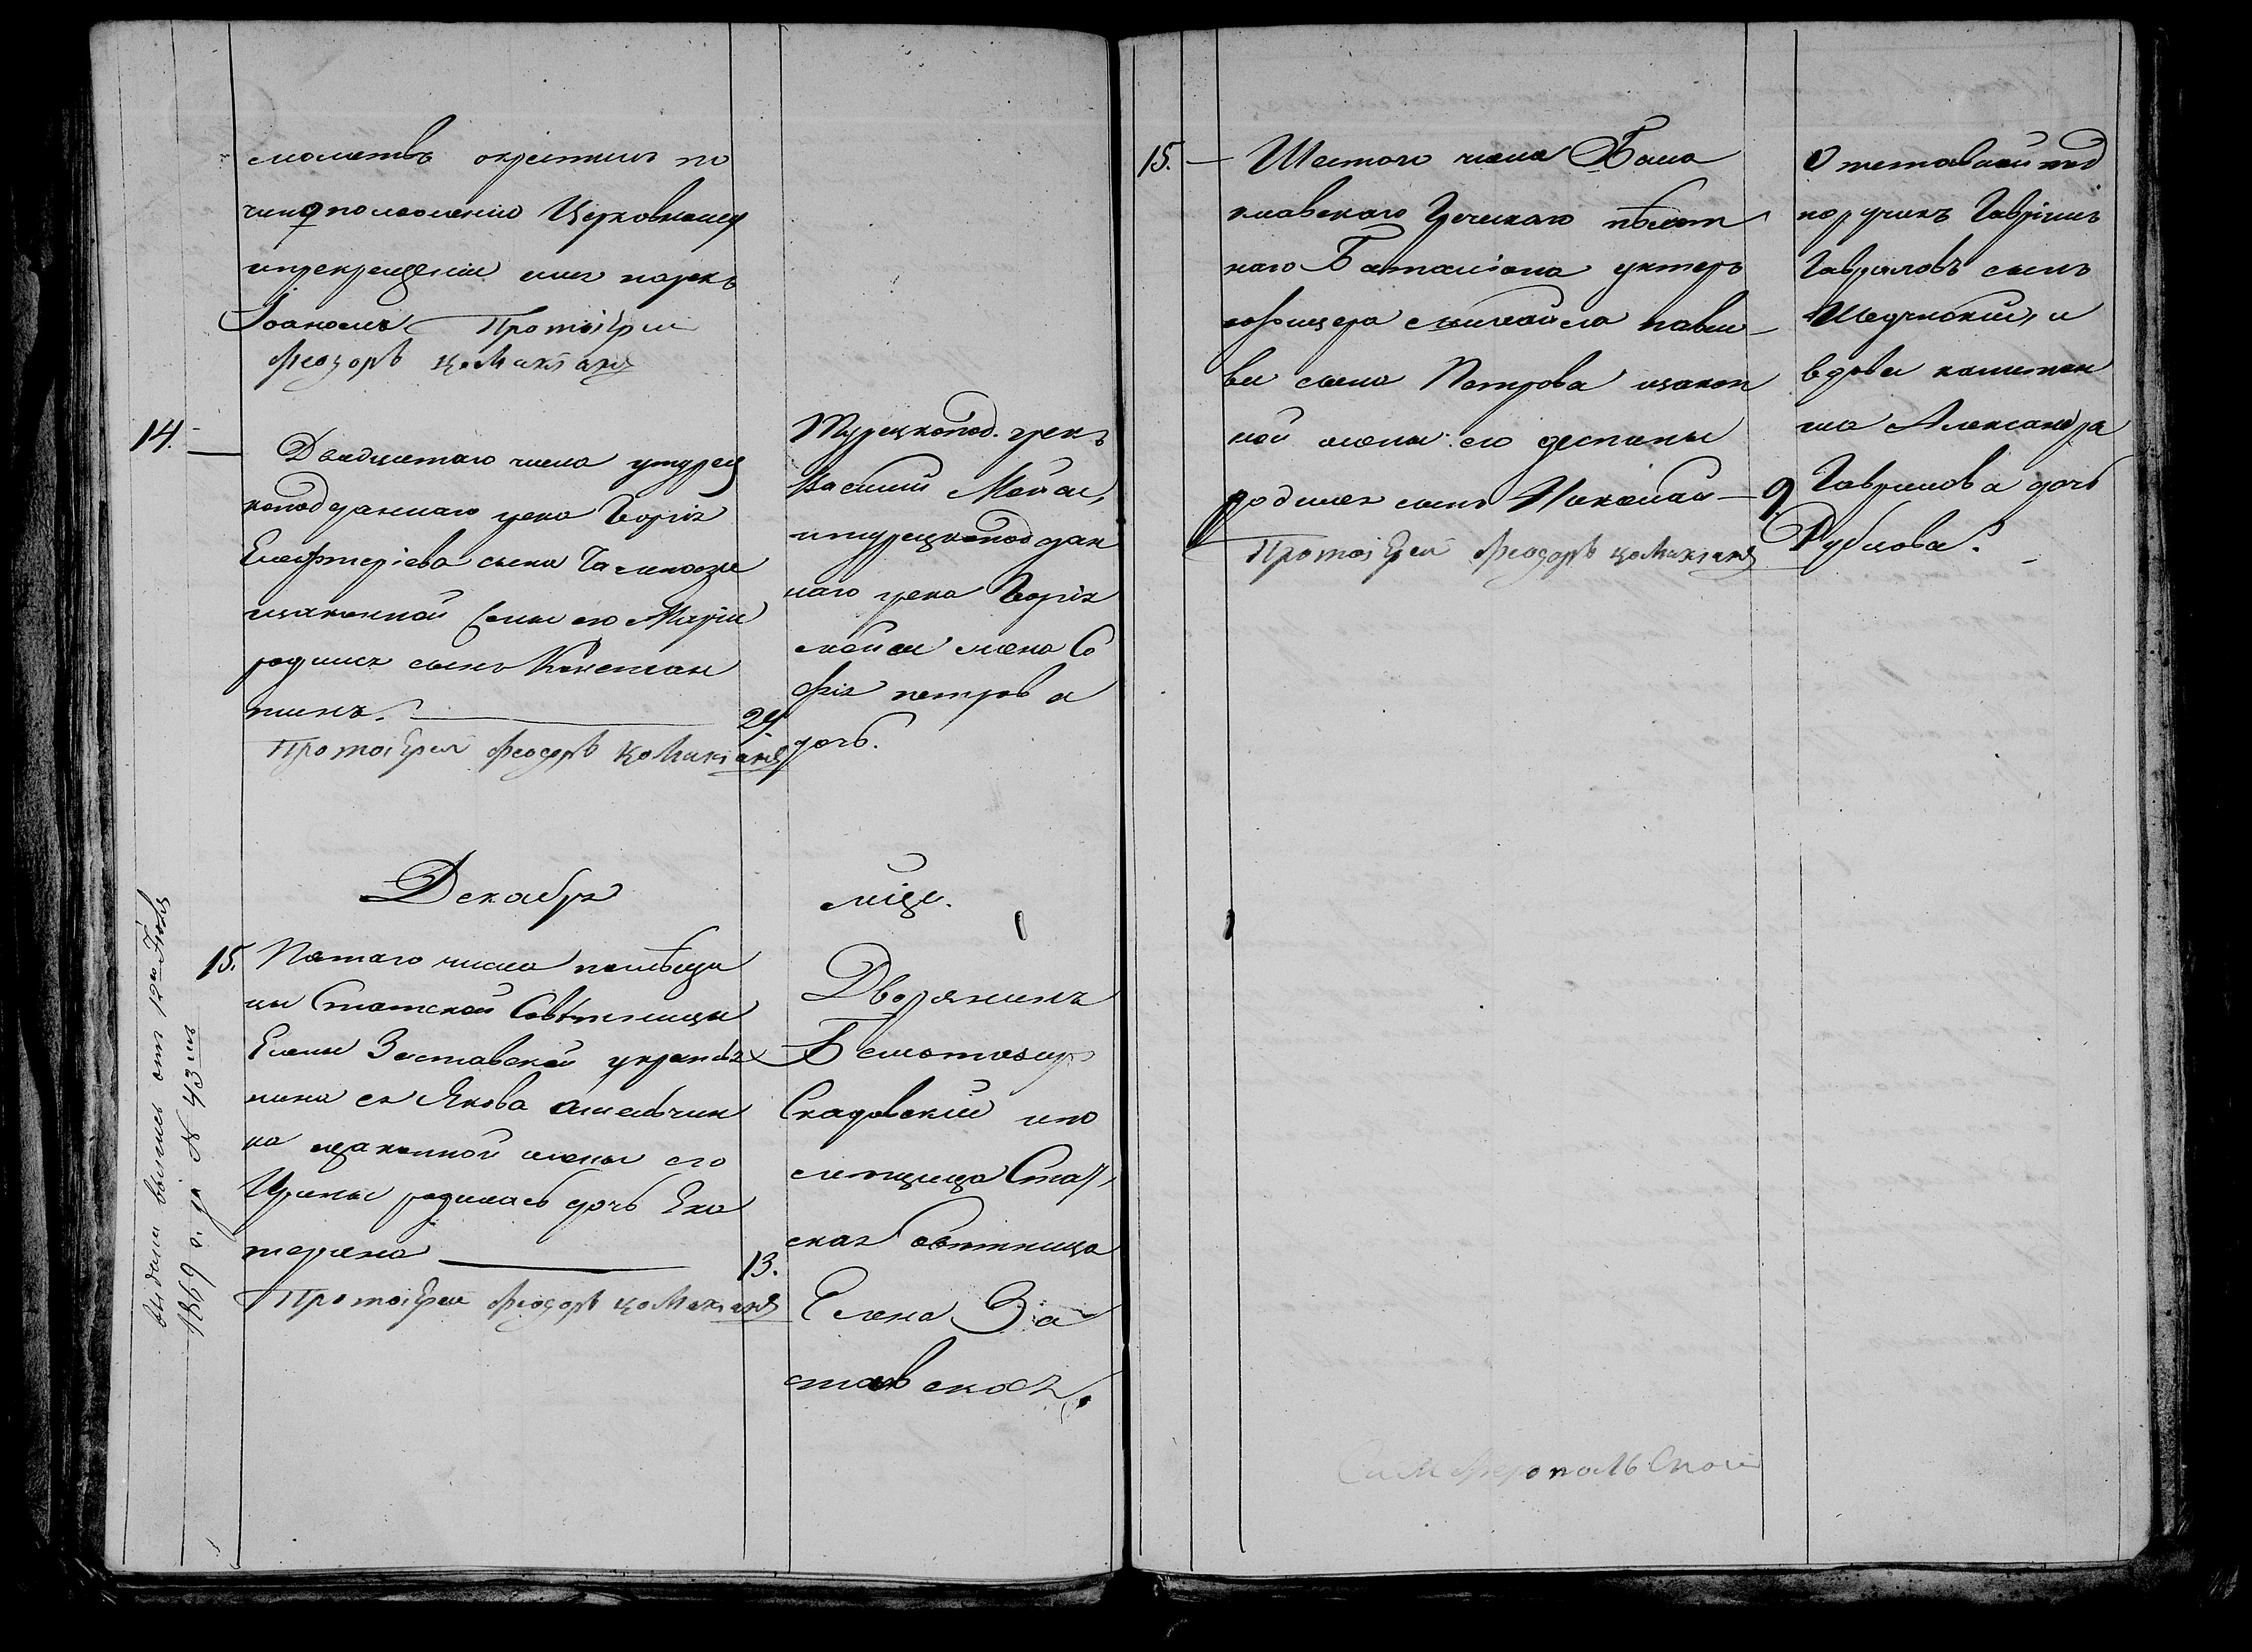 молитвъ окрестилъ по
чиноположенію Церковному
ипрекрещеніи имя нарекъ
Іоаномъ Протоіерей
Феодоръ
14.
Двадцатаго числа утурец
коподданнаго грека Георгія
Елефтеріева сына
изаконной жены его Маріи
родился сынъ Констан
тинъ.
24
Протоіерей Феодоръ
Турецкопод. грекъ
Василій
итурецкоподдан
наго грека Георгія
жена Со
фія петрова
дочь.
Декабря
мцъ.
15.
Пятаго числа помѣщи
цы Статской Совѣтницы
Елены Заставской укрестья
нина ея Якова
ка изаконной жены его
Ирины родилась дочь Ека
терина
13.
Протоіерей Феодоръ
Дворянинъ
Скадовскій ипо
мѣщица Стат
ская совѣтница
Елена За
ставская.
выдана выпись от 12го Іюля
1869 г. за N 43мъ
15.
Шестого числа Бала
клавскаго Греческаго пѣхот
наго Баталіона унтеръ
офицера михаила павло
ва сына Петрова изакон
ной жены его деспины
родился сынъ Николай
9.
Протоіерей Феодоръ
Отставной под
поручикъ Гавріилъ
Гавриловъ сынъ
и
вдова капитан
ша Александра
Гаврилова дочь
Рубцова.
Симферопольской